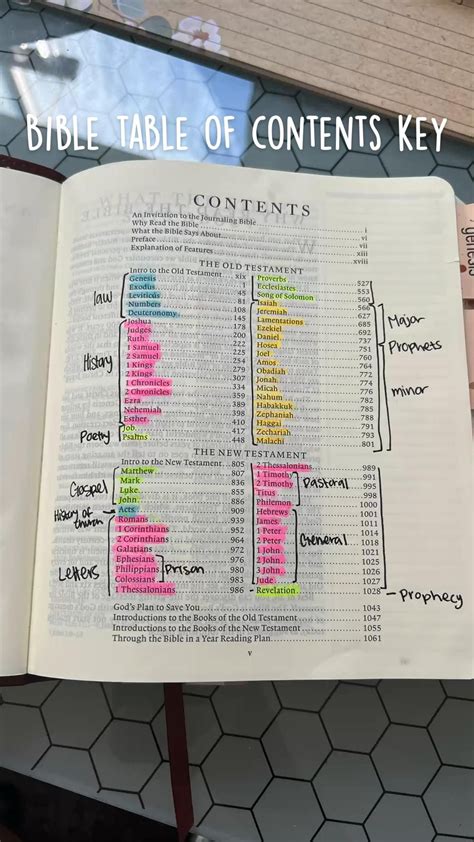 BIBLE TABLE OF CONTENTS KEY
CONTENTS
An Invitation to the Journaling Bible
Why Read the Bible i
What the Bible Says About vi
Preface vii
Explanation of Features xiii
xviii
THE OLD TESTAMENT
Intro to the Old Testament xix
law
Genesis 1
Exodus 45
Leviticus 81
Numbers 108
Deuteronomy 145
History
Joshua 178
Judges 200
Ruth 222
1 Samuel 225
2 Samuel 254
1 Kings 277
2 Kings 307
1 Chronicles 334
2 Chronicles 359
Ezra
Nehemiah 398
Esther 410
Poetry
Job 417
Psalms 448
Proverbs 527
Ecclesiastes 553
Song of Solomon 560
Isaiah 566
Jeremiah 627
Lamentations 685
Ezekiel 692
Daniel 737
Hosea 751
Joel 760
Amos 764
Obadiah 772
Jonah 774
Micah 776
Nahum 782
Habakkuk 785
Zephaniah 788
Haggai 791
Zechariah 793
Malachi 801
Major
Prophets
minor
THE NEW TESTAMENT
Intro to the New Testament 805
Gospel
Matthew 807
Mark 836
Luke 855
John 886
History of
church
Acts 909
Letters
Romans 939
1 Corinthians 952
2 Corinthians 964
Galatians 972
Ephesians 976
Philippians 980
Colossians 983
Prison
1 Thessalonians 986
2 Thessalonians 989
1 Timothy 991
2 Timothy 995
Titus 998
Pastoral
Philemon 1000
Hebrews 1001
James 1011
1 Peter 1014
2 Peter 1018
1 John 1021
2 John 1025
3 John 1026
Jude 1027
General
Revelation 1028
Prophecy
God's Plan to Save You 1043
Introductions to the Books of the Old Testament 1047
Introductions to the Books of the New Testament 1055
Through the Bible in a Year Reading Plan 1061
v
genesis